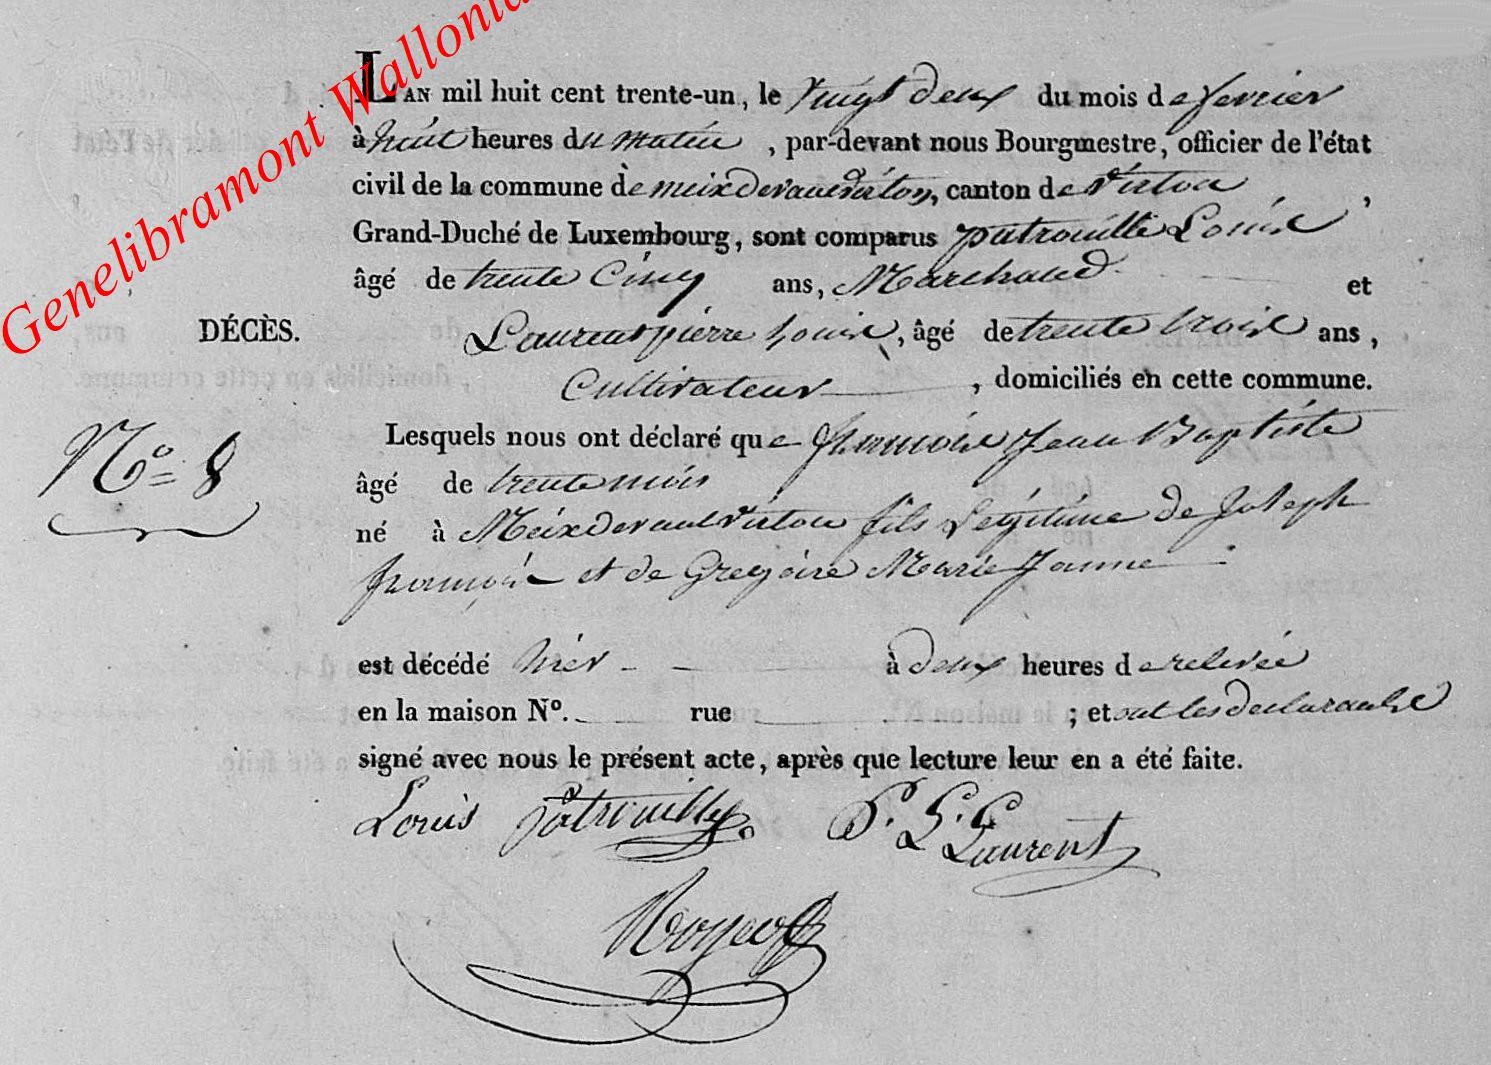 Genelibramont Wallonia
L'AN mil huit cent trente-un, le vingt deux du mois de fevrier
à huit heures du matin, par-devant nous Bourgmestre, officier de l'état
civil de la commune De meix devant virton, canton de virton,
Grand-Duché de Luxembourg, sont comparus patrouille Louis
âgé de trente Cinq ans, Marchand et
DÉCÈS. Laurent pierre Louis, âgé de trente trois ans,
Cultivateur, domiciliés en cette commune.
N° 8 Lesquels nous ont déclaré que françois Jean Baptiste
âgé de trente mois
né à Meix devant virton fils Légitime de Joseph
françois et de Gregoire Marie Jeanne
est décédé hier à deux heures de relevée
en la maison N°. rue ; et ont les declarants
signé avec nous le présent acte, après que lecture leur en a été faite.
Louis patrouille P. L. Laurent